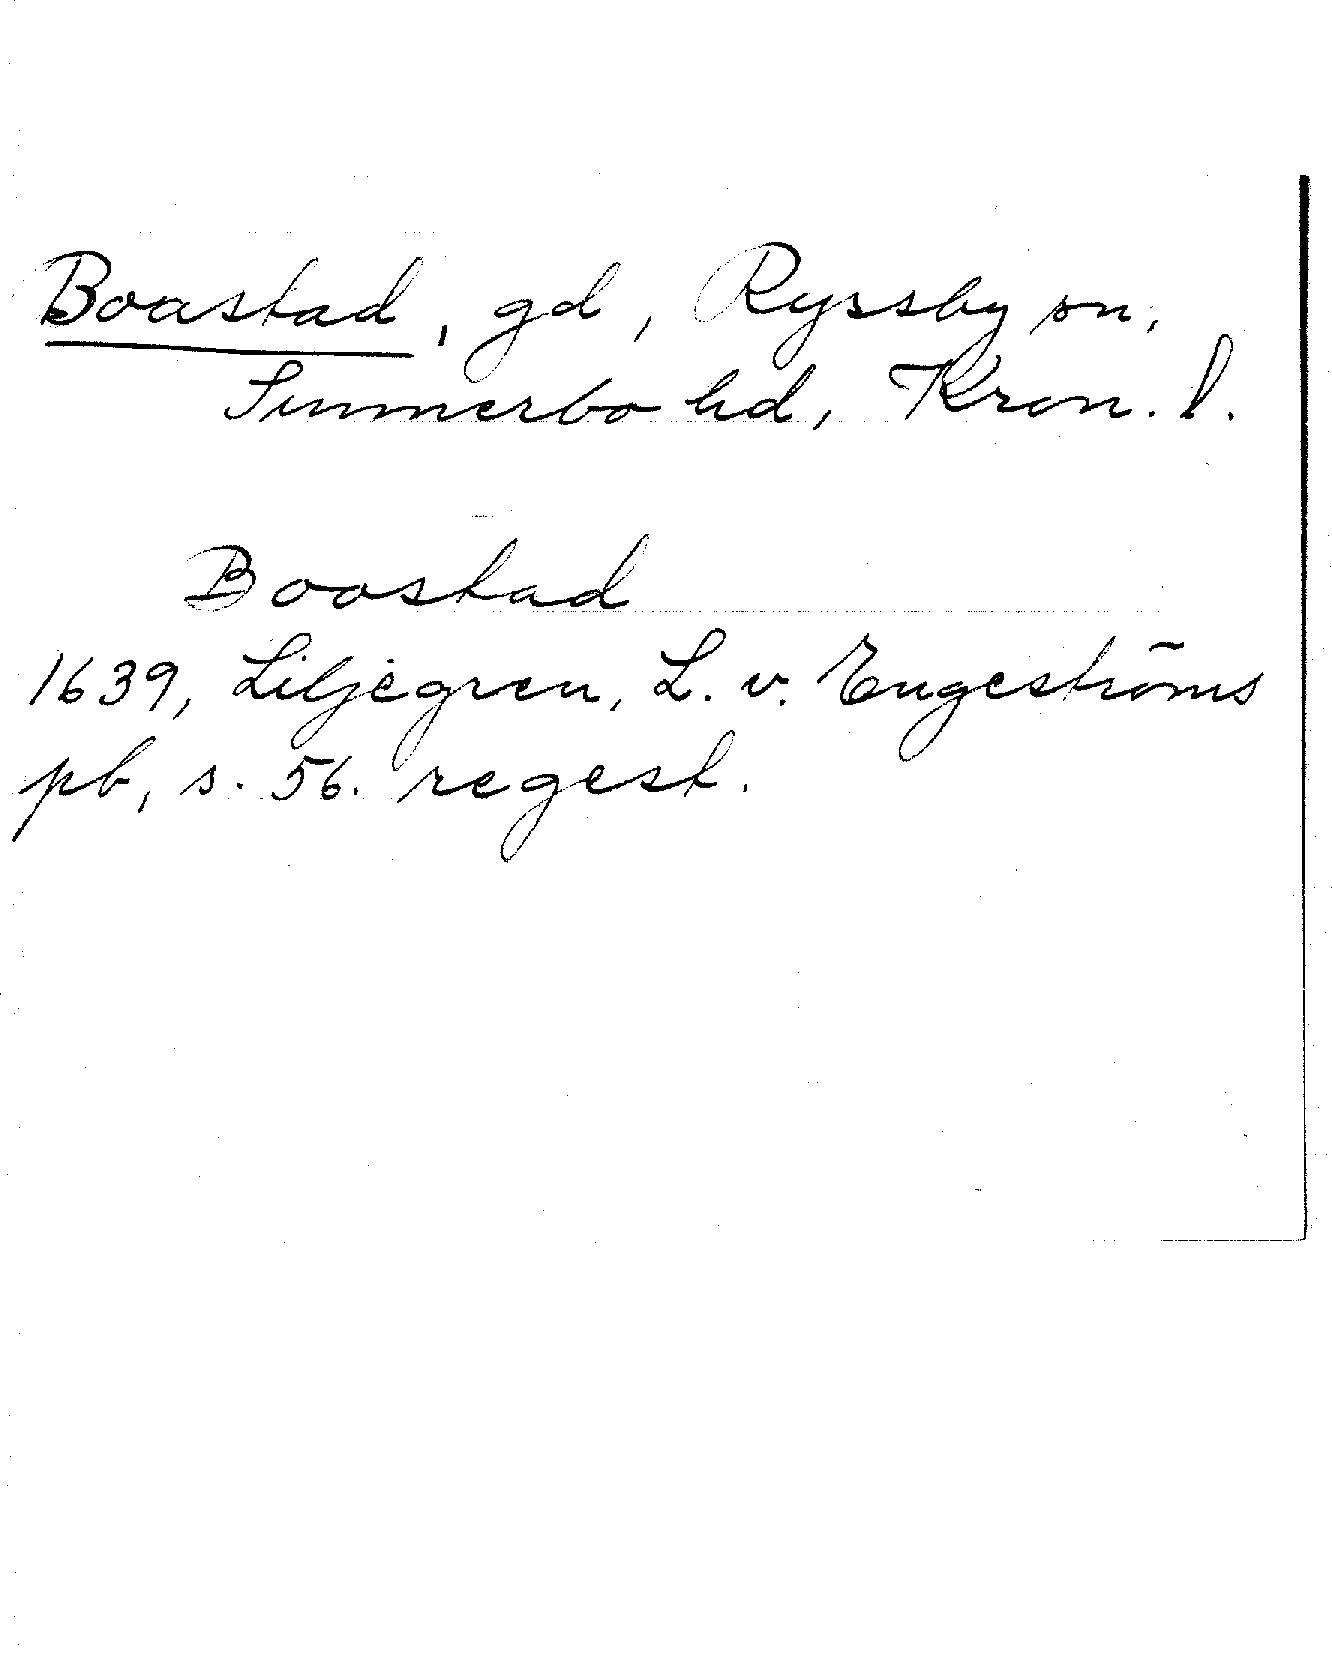 Boastad, gd, Ryssby sn,
Sunnerbo hd, Kron. l.
Boostad
1639, Liljegren, L. v. Engeströms
pb, s. 56. regest.